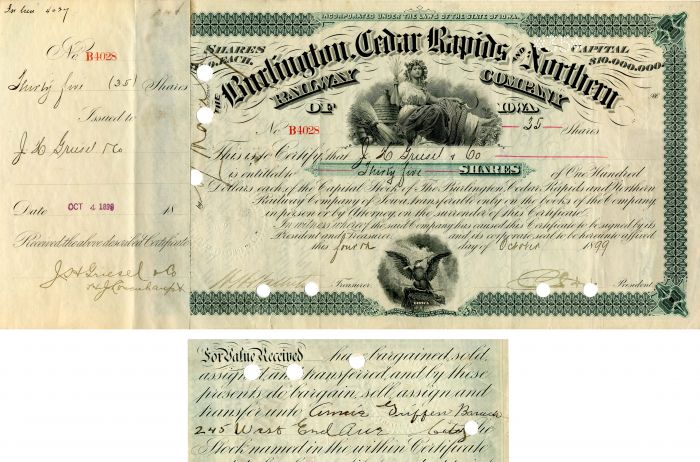 for lieu 4027
No. B4028
Thirty five (35) Shares
Issued to
J H Griesel & Co
Date OCT 4 1899 18
Received the above described Certificate
J. H Griesel & Co
INCORPORATED UNDER THE LAWS OF THE STATE OF IOWA.
SHARES EACH.
CAPITAL $10,000,000
THE Burlington, Cedar Rapids AND Northern
RAILWAY COMPANY
OF IOWA
No. B4028 35 Shares
This is to Certify, that J. H Griesel & Co
is entitled to Thirty five SHARES of One Hundred
Dollars each, of the Capital Stock of The Burlington, Cedar Rapids and Northern
Railway Company of Iowa, transferable only on the books of the Company,
in person or by Attorney, on the surrender of this Certificate.
In witness whereof the said Company has caused this Certificate to be signed by its
President and Treasurer and its corporate seal to be hereunto affixed
this fourth day of October 1899
Treasurer. President.
For Value Received ha bargained, sold,
assigned, and transferred, and by these
presents do bargain, sell, assign and
transfer unto Annie Griffen Baruch
245 West End Ave City the
Stock named in the within Certificate